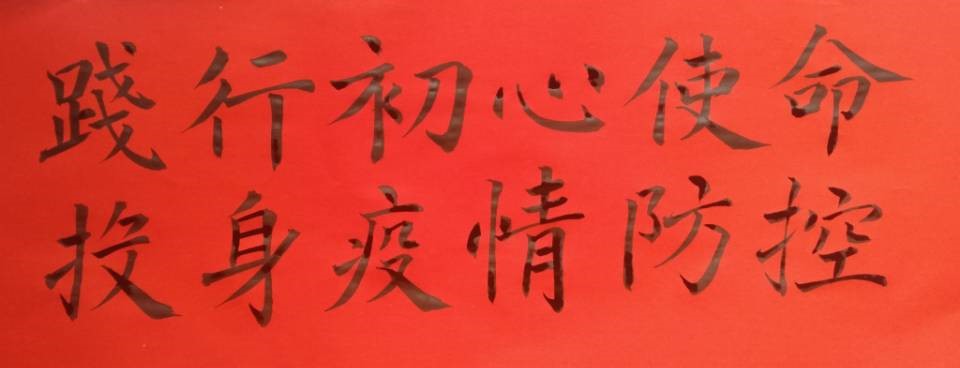 踐行初心使命
投身疫情防控